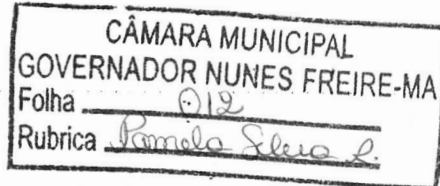 CÂMARA MUNICIPAL
GOVERNADOR NUNES FREIRE-MA
Folha 012
Rubrica Pamela Silva S.